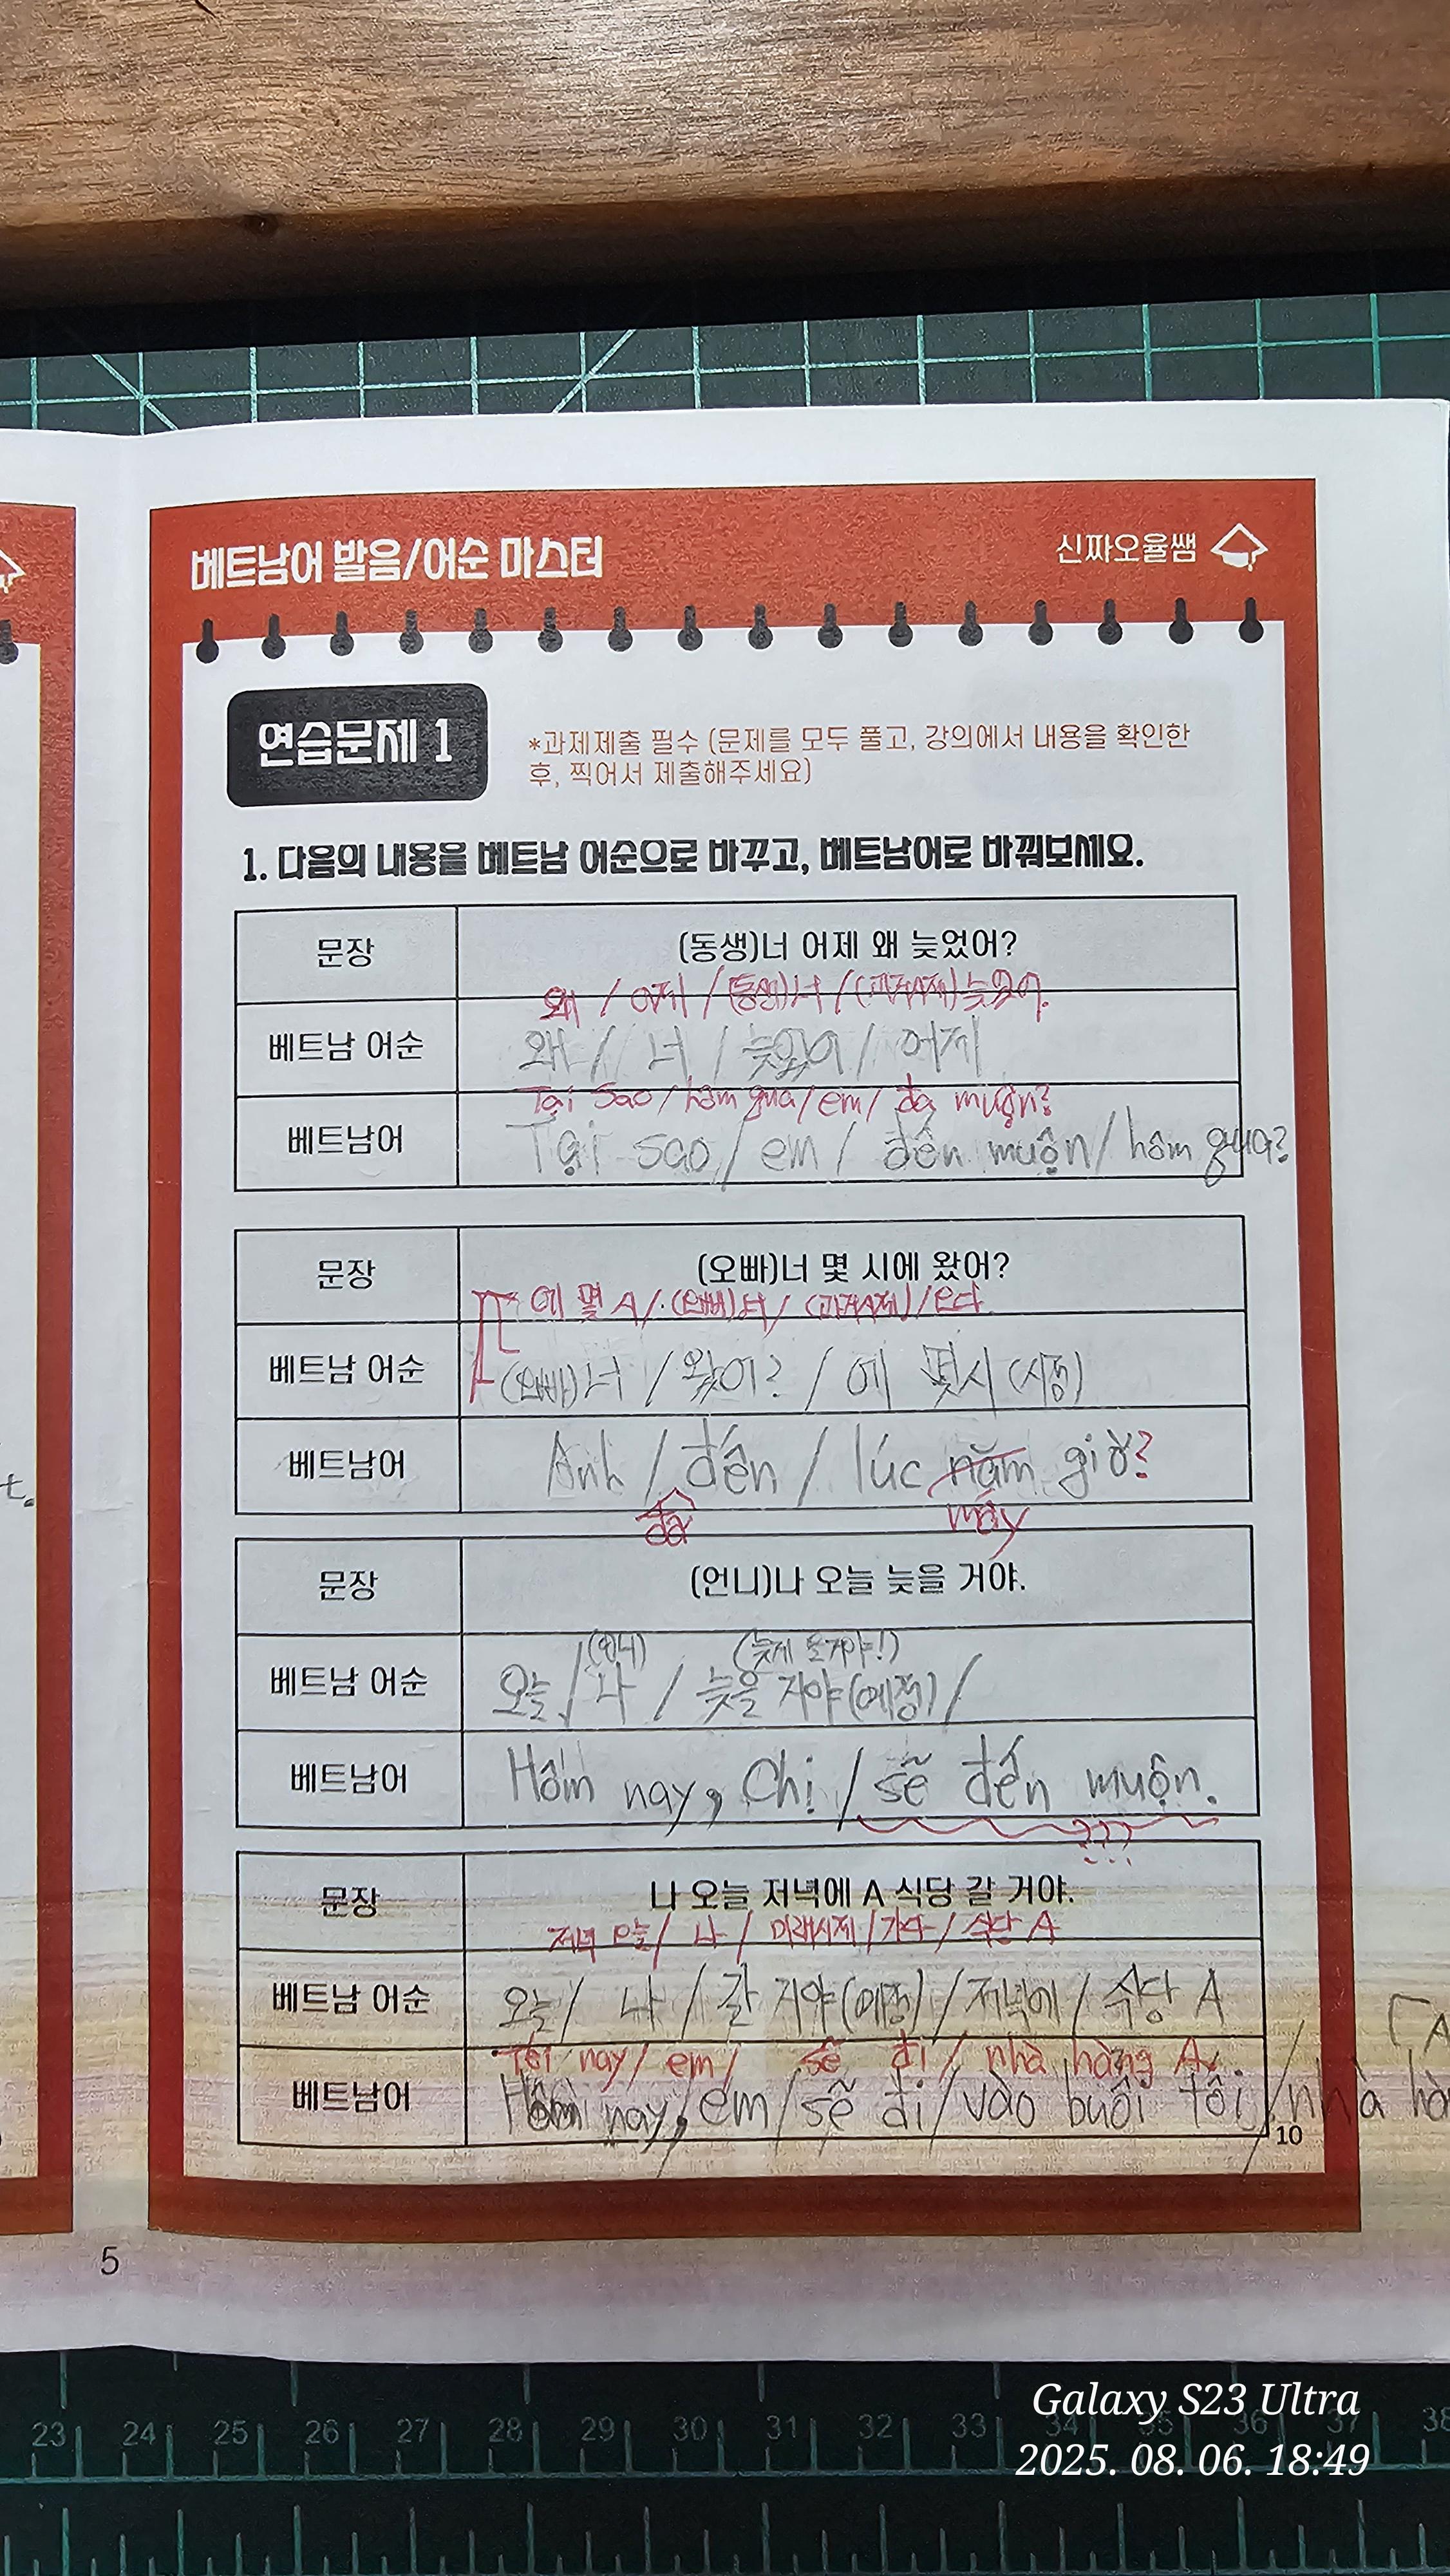 베트남어 발음/어순 마스터
신짜오율쌤
연습문제 1
*과제제출 필수 (문제를 모두 풀고, 강의에서 내용을 확인한
후, 찍어서 제출해주세요)
1. 다음의 내용을 베트남 어순으로 바꾸고, 베트남어로 바꿔보세요.
문장
(동생)너 어제 왜 늦었어?
왜 / 어제 / (동생)너 / (과거시제)늦었어.
베트남 어순
왜 / 너 / 늦었어 / 어제
Tại sao / hôm qua / em / đã muộn?
베트남어
Tại sao / em / đến muộn / hôm qua?
문장
(오빠)너 몇 시에 왔어?
에 몇 시 / (오빠)너 / (과거시제) / 오다
베트남 어순
(오빠)너 / 왔어? / 에 몇시 (시점)
베트남어
Anh / đến / lúc năm giờ?
đã
mấy
문장
(언니)나 오늘 늦을 거야.
(언니) (늦게 올거야!)
베트남 어순
오늘 / 나 / 늦을 거야(예정) /
베트남어
Hôm nay, Chị / sẽ đến muộn.
???
문장
나 오늘 저녁에 A 식당 갈 거야.
저녁 오늘 / 나 / 미래시제 / 가다 / 식당 A
베트남 어순
오늘 / 나 / 갈 거야(예정) / 저녁에 / 식당 A
Tối nay / em / sẽ đi / nhà hàng A.
베트남어
Hôm nay, em / sẽ đi / vào buổi tối / nhà hà
10
5
t.
23 24 25 26 27 28 29 30 31 32 33 34 35 36 37 38
Galaxy S23 Ultra
2025. 08. 06. 18:49